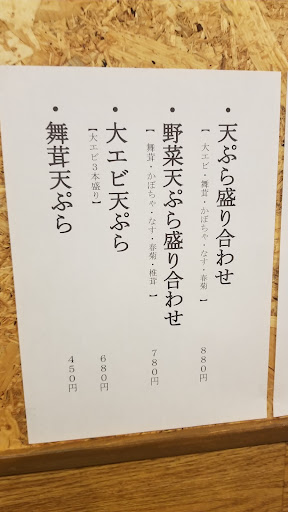 ・天ぷら盛り合わせ
【大エビ・舞茸・かぼちゃ・なす・春菊】
880円
・野菜天ぷら盛り合わせ
【舞茸・かぼちゃ・なす・春菊・椎茸】
780円
・大エビ天ぷら
【大エビ3本盛り】
680円
・舞茸天ぷら
450円